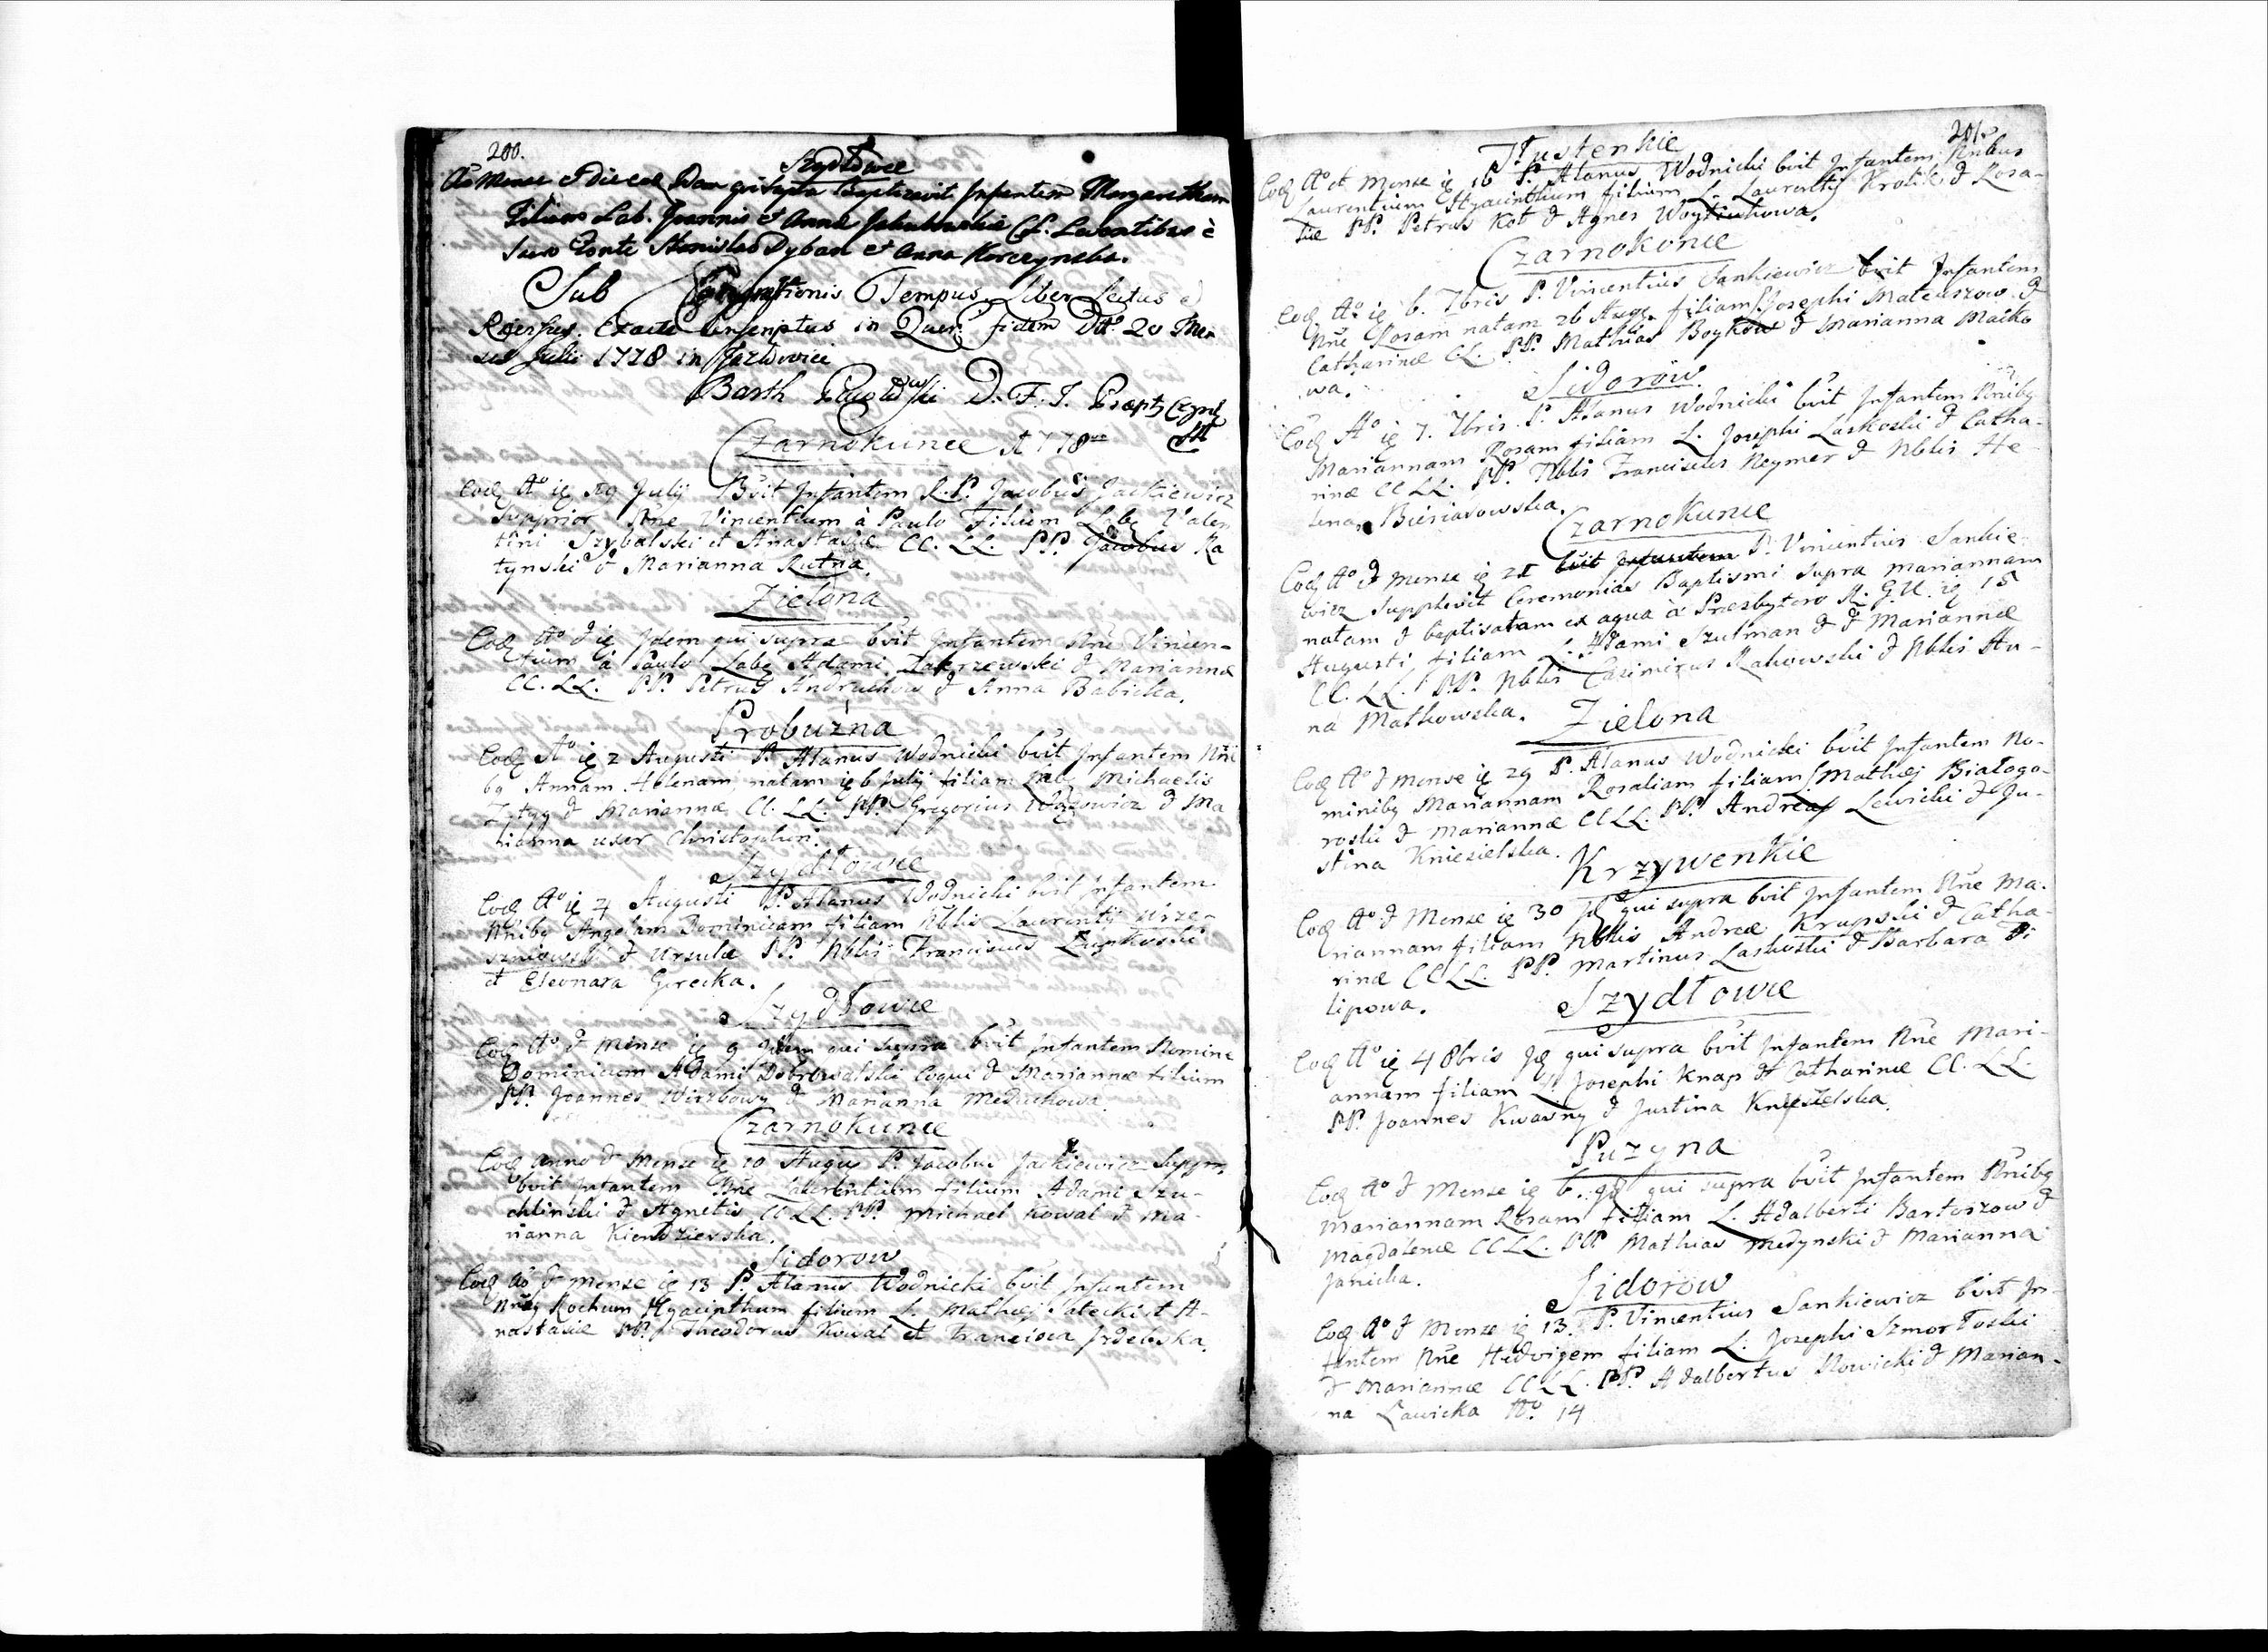 200.
Szydłowce
Ao Mense et Die eod. Idem qui supra Baptizavit Infantem Margaretham
Filiam Lab. Joannis et Anna CL. Levantibus è
Sacro Fonte Stanislao Dyban et Anna Korczynska.
Sub Tempus Liber Lectus
Exacte in fidem Dtt. 20 Men
sis Julii 1778 in
Barth D. F. J.
Czarnokunce A 778
Eodē Ao ię 29 Julij Bvit Infantem R. P. Jacobus Jackiewicz
Supprior Nne Vincentium à Paulo Filium Labę Valen
tini Szybalski et Anastasiæ CC. LL. PP. Jacobus Ra
tynski & Marianna Rutna.
Zielona
Eodē Ao & ię Idem qui supra bvit Infantem Nne Vincen-
tium à Paulo Labę Adami Zakrzewski & Mariannæ
CC. LL. PP. Petrus Andruchow & Anna Babicka.
Probużna
Eodē Ao ię 2 Augusti P. Alanus Wodnicki bvit Infantem Nni
bą Annam Helenam natam ię 6 Julij filiam Labę Michaelis
& Mariannæ CC. LL. PP. Gregorius & Ma
rianna uxor Christophori.
Szydłowce
Eodē Ao ię 4 Augusti P. Alanus Wodnicki bvit Infantem
Nnibą Angelam Dominicam filiam Nblis Laurentij Wrze-
sniowski & Ursulæ PP. Nblis Franciscus
et Eleonara Gorecka.
Szydłowce
Eodē Ao & Mense ię 9 Idem qui supra bvit Infantem Nomine
Dominicum Adami Dobrowolski Coqui & Mariannæ filium
PP. Joannes Wierzbowy & Marianna Meduchowa.
Czarnokunce
Eodē Anno & Mense ię 10 Augus P. Jacobus Jackiewicz Suppr.
bvit Infantem Nne Laurentium filium Adami Szu-
chlinski & Agnetis CC LL. PP. Michael Kowal & Ma-
rianna Kiendzierska.
Sidorow
Eodē Ao & Mense ię 13 P. Alanus Wodnicki bvit Infantem
Nnibą Rochum Hyacinthum filium L. Mathæj Sałecki et A-
nastasiæ PP. Theodorus Kowal et Francisca Jrdebska.
201.
Tłustenkie
Eodē Ao et Mense ię 16 P. Alanus Wodnicki bvit Infantem Nnibus
Laurentium Hyacinthum filium L. Laurentij Krolik & Rosa-
liæ PP. Petrus Kot & Agnes Woytiukowa.
Czarnokonce
Eodē Ao ię 6. 7bris P. Vincentius Sankiewicz bvit Infantem
Nne Rosam natam 26 Augą filiam L Josephi Mateuszow &
Catharinæ CC. PP. Mathias Boykow & Marianna Maćko
wa.
Sidorow
Eodē Ao ię 7. 7bris P. Alanus Wodnicki bvit Infantem Nnibą
Mariannam Rosam filiam L. Josephi Laskoski & Catha-
rinæ CC LL. PP. Nblis Franciscus Neymer & Nblis He-
lena Biesiasowska.
Czarnokunce
Eodē Ao & Mense ię 21 P. Vincentius Sankie
wicz Supplevit Ceremonias Baptismi supra Mariannam
natam & baptisatam ex aqua à Præsbytero R. G. U. ię 15
Augusti, filiam L. Adami Szulman & & Mariannæ
CC. LL. PP. Nblis Casimirus Rakowski & Nblis An-
na Małkowska.
Zielona
Eodē Ao & Mense ię 29 P. Alanus Wodnicki bvit Infantem No-
minibą Mariannam Rosaliam filiam L Mathæj Białogo-
roski & Mariannæ CC LL. PP. Andreas Lewicki & Ju-
stina Kniezielska.
Krzywenkie
Eodē Ao & Mense ię 30 Ję qui supra bvit Infantem Nne Ma-
riannam filiam Nblis Andreæ Krupski & Catha-
rinæ CC LL. PP. Martinus Laskoski & Barbara Fi
lipowa.
Szydłowce
Eodē Ao ię 4 8bris Ję qui supra bvit Infantem Nne Mari-
annam filiam L. Josephi Knap & Catharinæ CC. LL.
PP. Joannes Kwasny & Justina Knyszelska.
Puzyna
Eodē Ao & Mense ię 6. Ję qui supra bvit Infantem Nnibą
Mariannam Rosam filiam L. Adalberti Bartoszow &
Magdalenæ CC LL. PP Mathias Medynski & Marianna
Janicka.
Sidorow
Eodē Ao & Mense ię 13. P. Vincentius Sankiewicz bvit In-
fantem Nne Hedvigem filiam L. Josephi Szmortoski
& Mariannæ CC LL. PP. Adalbertus Nowicki & Marian-
na Lawicka Ao. 14